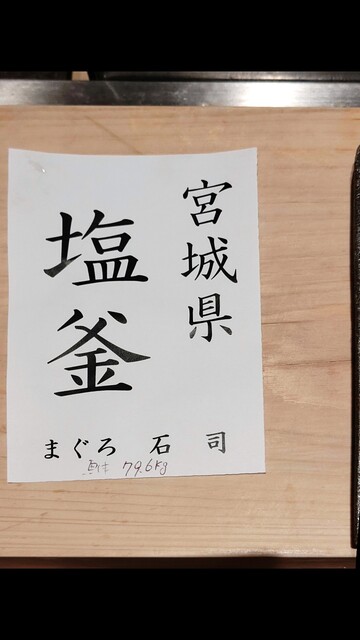 宮城県
塩釜
まぐろ 石司
79.6kg